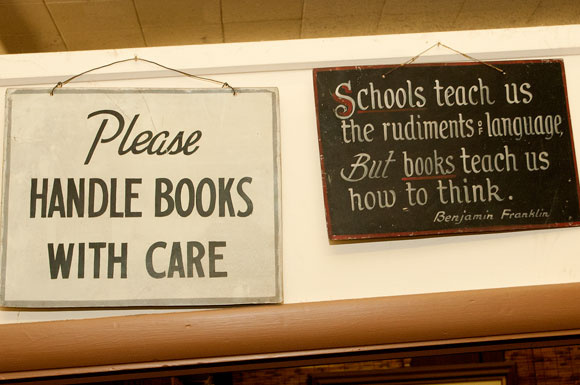 Please
HANDLE BOOKS
WITH CARE
Schools teach us
the rudiments OF language,
But books teach us
how to think.
Benjamin Franklin